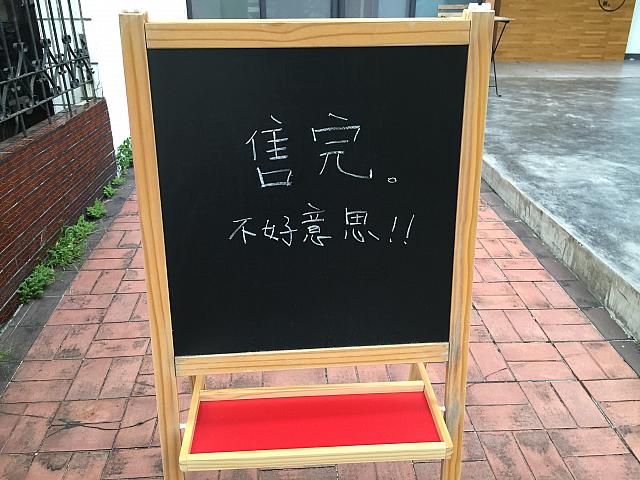 售完。
不好意思!!